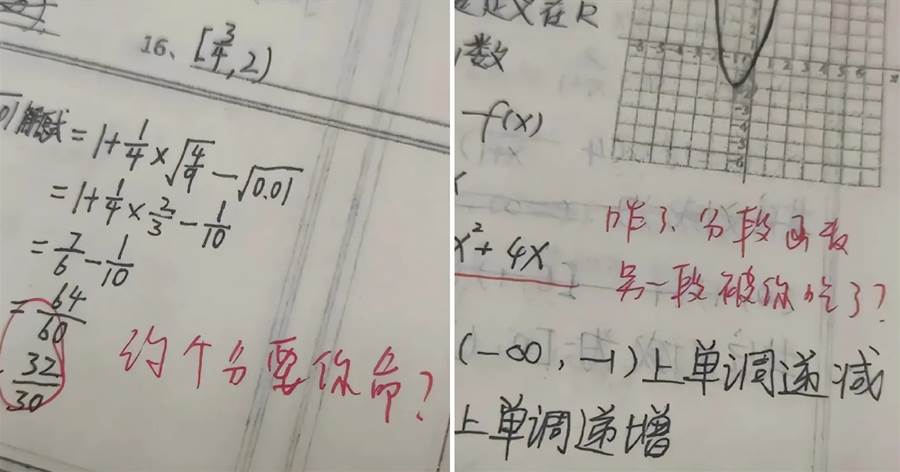 16、[3/4, 2)
解:原式 = 1+1/4×√(4/9)-√0.01
= 1+1/4×2/3-1/10
= 7/6-1/10
= 64/60
32/30
约个分要你命?
定义在R
数
-f(x)
x²+4x
咋了、分段函数
另一段被你吃了?
(-∞,-1)上单调递减
上单调递增